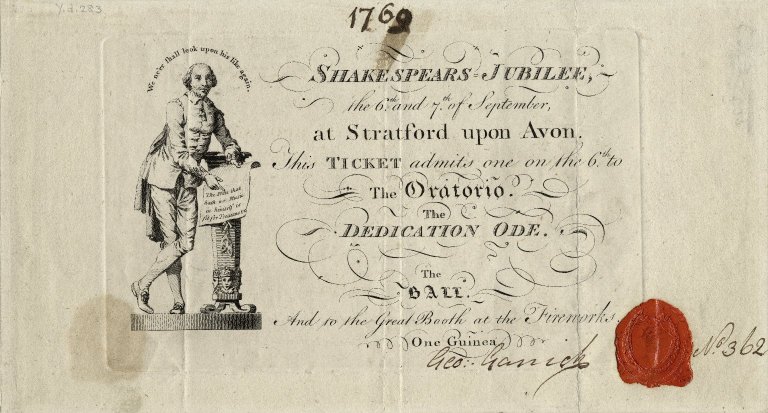 Y.d.283
1769
We ne'er shall look upon his like again.
SHAKESPEARS JUBILEE,
the 6.th and 7.th of September,
at Stratford upon Avon.
This TICKET admits one on the 6.th to
The Oratorio.
The
DEDICATION ODE.
The
BALL.
And to the Great Booth at the Fireworks.
One Guinea
Geo: Garrick
No 362
The Man that
hath not Music
in himself is
fit for Treasons &c